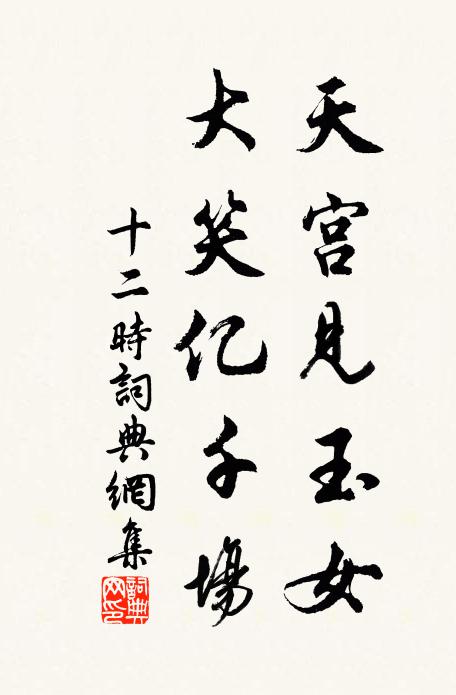 天宫見玉女
大笑亿千場
十二時詞典網集
詞典
网印